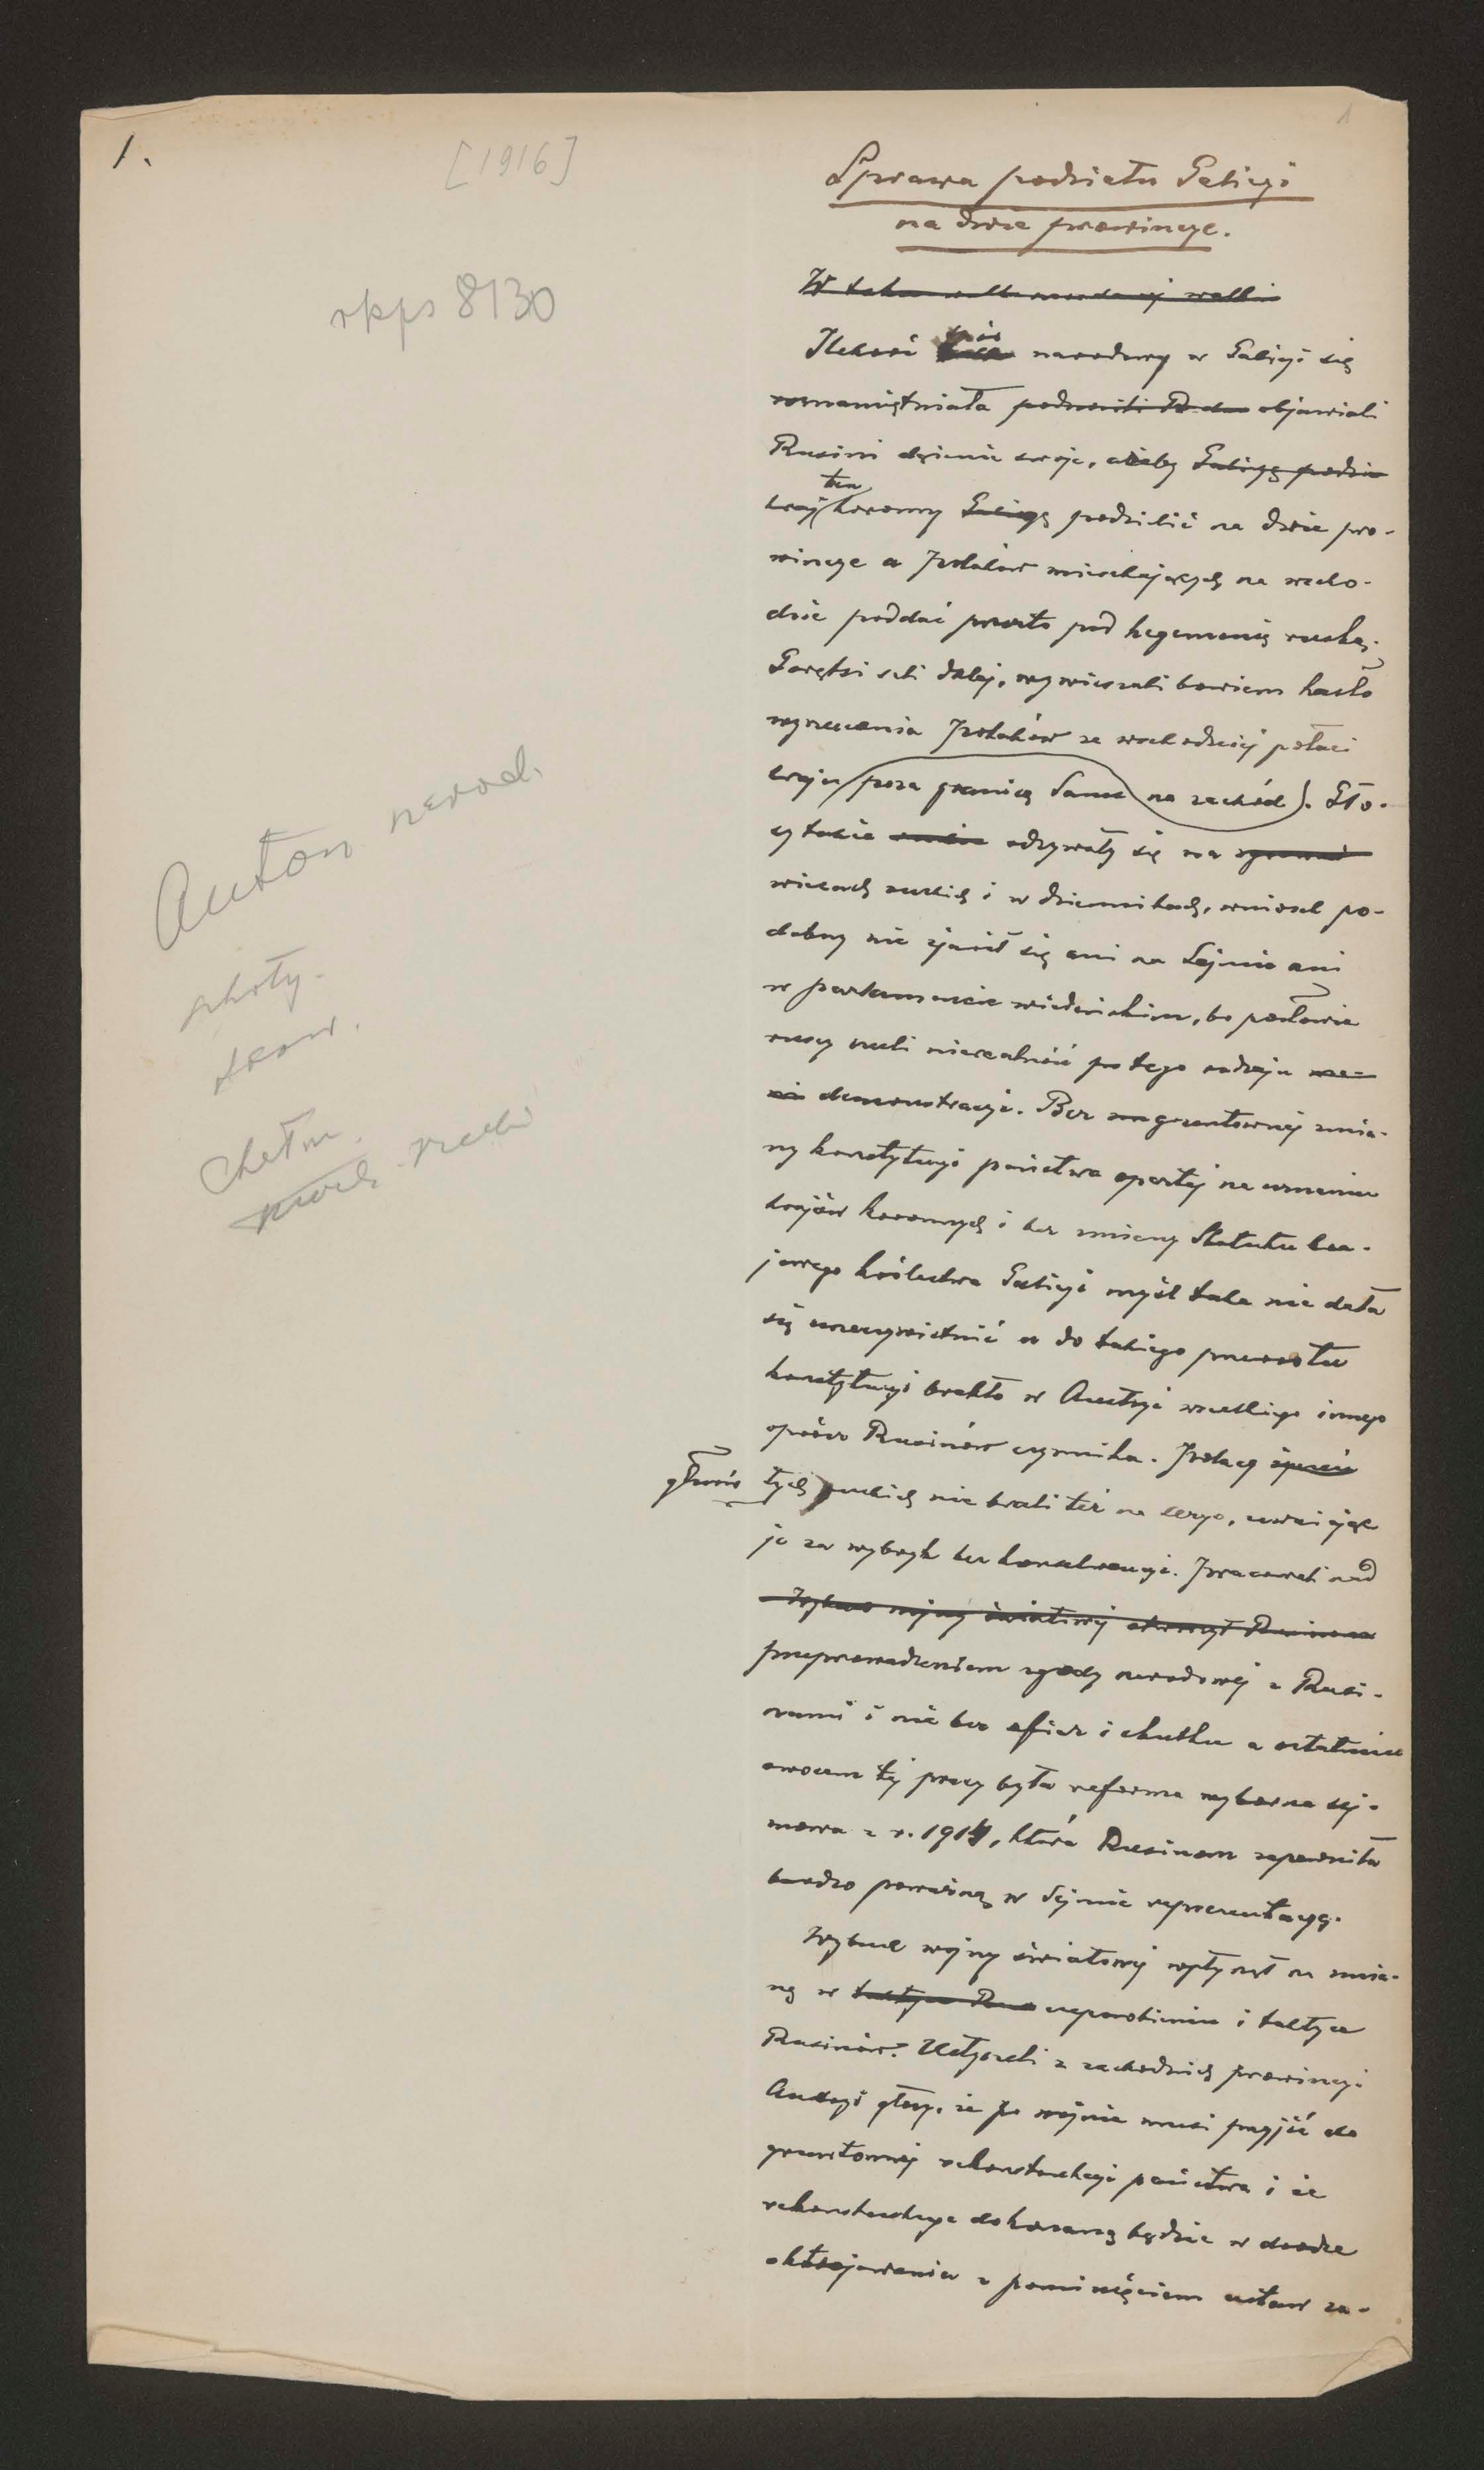 1.
[1916]
1
rkps 8130
Auton narod.
Chełm.
Sprawa podziału Galicyi
na dwie prowincye.
W walki
Ilekroć spór narodowy w Galicyi się
roznamiętniała objawiali
Rusini dążenie swoje, ażeby Galicyę podzie
kraj ten koronny Galicyę podzielić na dwie pro-
wincye a Polaków mieszkających na wscho-
dzie poddać prosto pod hegemonię ruską.
Gorętsi szli dalej, wywieszali bowiem hasło
wyrzucenia Polaków ze wschodniej połaci
kraju (poza granicę Sanu na zachód). Gło-
sy takie odzywały się na
wiecach ruskich i w dziennikach, wniosek po-
dobny nie zjawił się ani na Sejmie ani
w parlamencie wiedeńskim, bo posłowie
ruscy czuli nierealność tego rodzaju
demonstracyi. Bez gruntownej zmia-
ny konstytucyi państwa opartej na uznaniu
krajów koronnych i bez zmiany Statutu kra-
jowego królestwa Galicyi myśl taka nie dała
się urzeczywistnić a do takiego przewrotu
konstytucyi brakło w Austryi wszelkiego innego
oprócz Rusinów czynnika. Polacy
głosów tych ruskich nie brali też na seryo, uważając
je za wybryk bez konsekwencyi. Pracowali nad
Wybuch wojny światowej Rusinom
przeprowadzeniem zgody narodowej z Rusi-
nami i nie bez ofiar i skutku a ostatnim
owocem tej pracy była reforma wyborcza sej-
mowa z r. 1914, która Rusinom zapewniła
bardzo poważną w Sejmie reprezentacyę.
Wybuch wojny światowej wpłynął na zmia-
nę w taktyce Rus usposobieniu i taktyce
Rusinów. Usłyszeli z zachodnich prowincyi
Austryi głosy, że po wojnie musi przyjść do
gruntownej rekonstrukcyi państwa i że
rekonstrukcya dokonaną będzie w drodze
oktrojowania z pominięciem ustaw za-